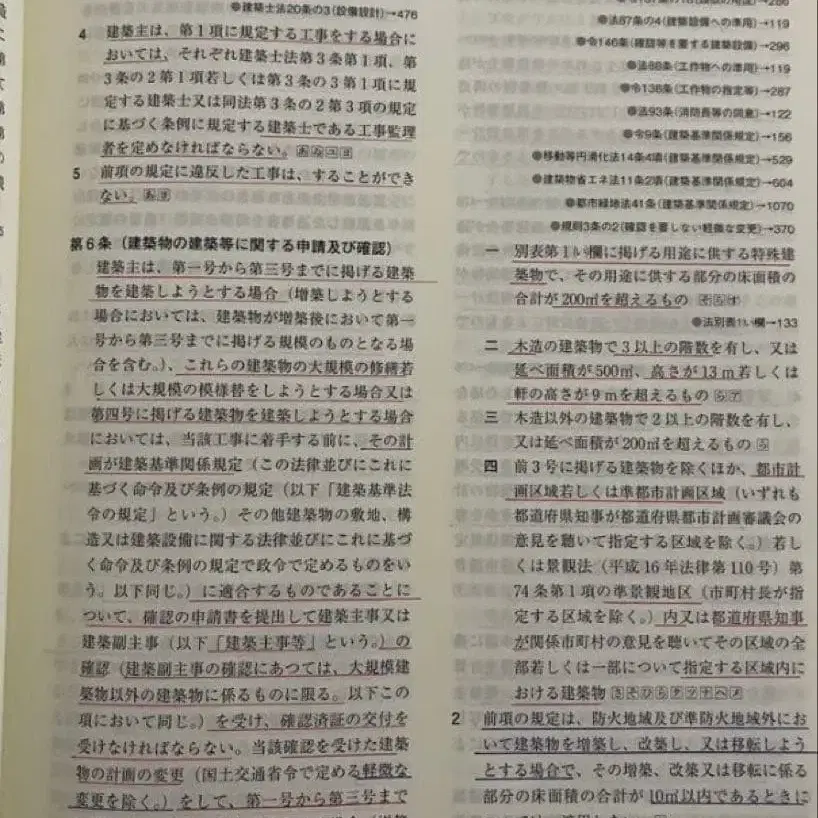 ●建築士法20条の3(設備設計)→476
4 建築主は、第1項に規定する工事をする場合に
おいては、それぞれ建築士法第3条第1項、第
3条の2第1項若しくは第3条の3第1項に規
定する建築士又は同法第3条の2第3項の規定
に基づく条例に規定する建築士である工事監理
者を定めなければならない。
5 前項の規定に違反した工事は、することができ
ない。
第6条（建築物の建築等に関する申請及び確認）
建築主は、第一号から第三号までに掲げる建築
物を建築しようとする場合（増築しようとする
場合においては、建築物が増築後において第一
号から第三号までに掲げる規模のものとなる場
合を含む。）、これらの建築物の大規模の修繕若
しくは大規模の模様替をしようとする場合又は
第四号に掲げる建築物を建築しようとする場合
においては、当該工事に着手する前に、その計
画が建築基準関係規定（この法律並びにこれに
基づく命令及び条例の規定（以下「建築基準法
令の規定」という。）その他建築物の敷地、構
造又は建築設備に関する法律並びにこれに基づ
く命令及び条例の規定で政令で定めるものをい
う。以下同じ。）に適合するものであることに
ついて、確認の申請書を提出して建築主事又は
建築副主事（以下「建築主事等」という。）の
確認（建築副主事の確認にあつては、大規模建
築物以外の建築物に係るものに限る。以下この
項において同じ。）を受け、確認済証の交付を
受けなければならない。当該確認を受けた建築
物の計画の変更（国土交通省令で定める軽微な
変更を除く。）をして、第一号から第三号まで
●法87条の4(建築設備への準用)→119
●令146条(確認等を要する建築設備)→296
●法88条(工作物への準用)→119
●令138条(工作物の指定等)→287
●法93条(消防長等の同意)→122
●令9条(建築基準関係規定)→156
●移動等円滑化法14条4項(建築基準関係規定)→529
●建築物省エネ法11条2項(建築基準関係規定)→604
●都市緑地法41条(建築基準関係規定)→1070
●規則3条の2(確認を要しない軽微な変更)→370
一 別表第1い欄に掲げる用途に供する特殊建
築物で、その用途に供する部分の床面積の
合計が200㎡を超えるもの
●法別表1い欄→133
二 木造の建築物で3以上の階数を有し、又は
延べ面積が500㎡、高さが13m若しくは
軒の高さが9mを超えるもの
三 木造以外の建築物で2以上の階数を有し、
又は延べ面積が200㎡を超えるもの
四 前3号に掲げる建築物を除くほか、都市計
画区域若しくは準都市計画区域（いずれも
都道府県知事が都道府県都市計画審議会の
意見を聴いて指定する区域を除く。）若し
くは景観法（平成16年法律第110号）第
74条第1項の準景観地区（市町村長が指
定する区域を除く。）内又は都道府県知事
が関係市町村の意見を聴いてその区域の全
部若しくは一部について指定する区域内に
おける建築物
2 前項の規定は、防火地域及び準防火地域外にお
いて建築物を増築し、改築し、又は移転しよう
とする場合で、その増築、改築又は移転に係る
部分の床面積の合計が10㎡以内であるときに